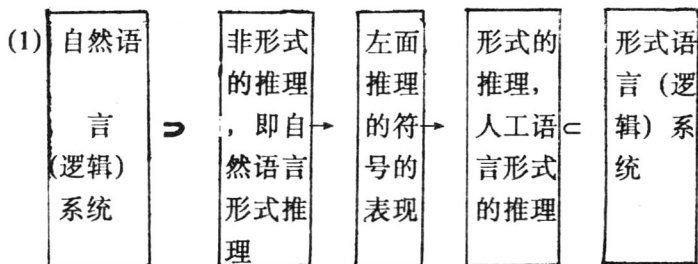 (1)
自然语
言
(逻辑)
系统
⊃
非形式
的推理
，即自
然语言
形式推
理
→
左面
推理
的符
号的
表现
→
形式的
推理，
人工语
言形式
的推理
⊂
形式语
言（逻
辑）系
统